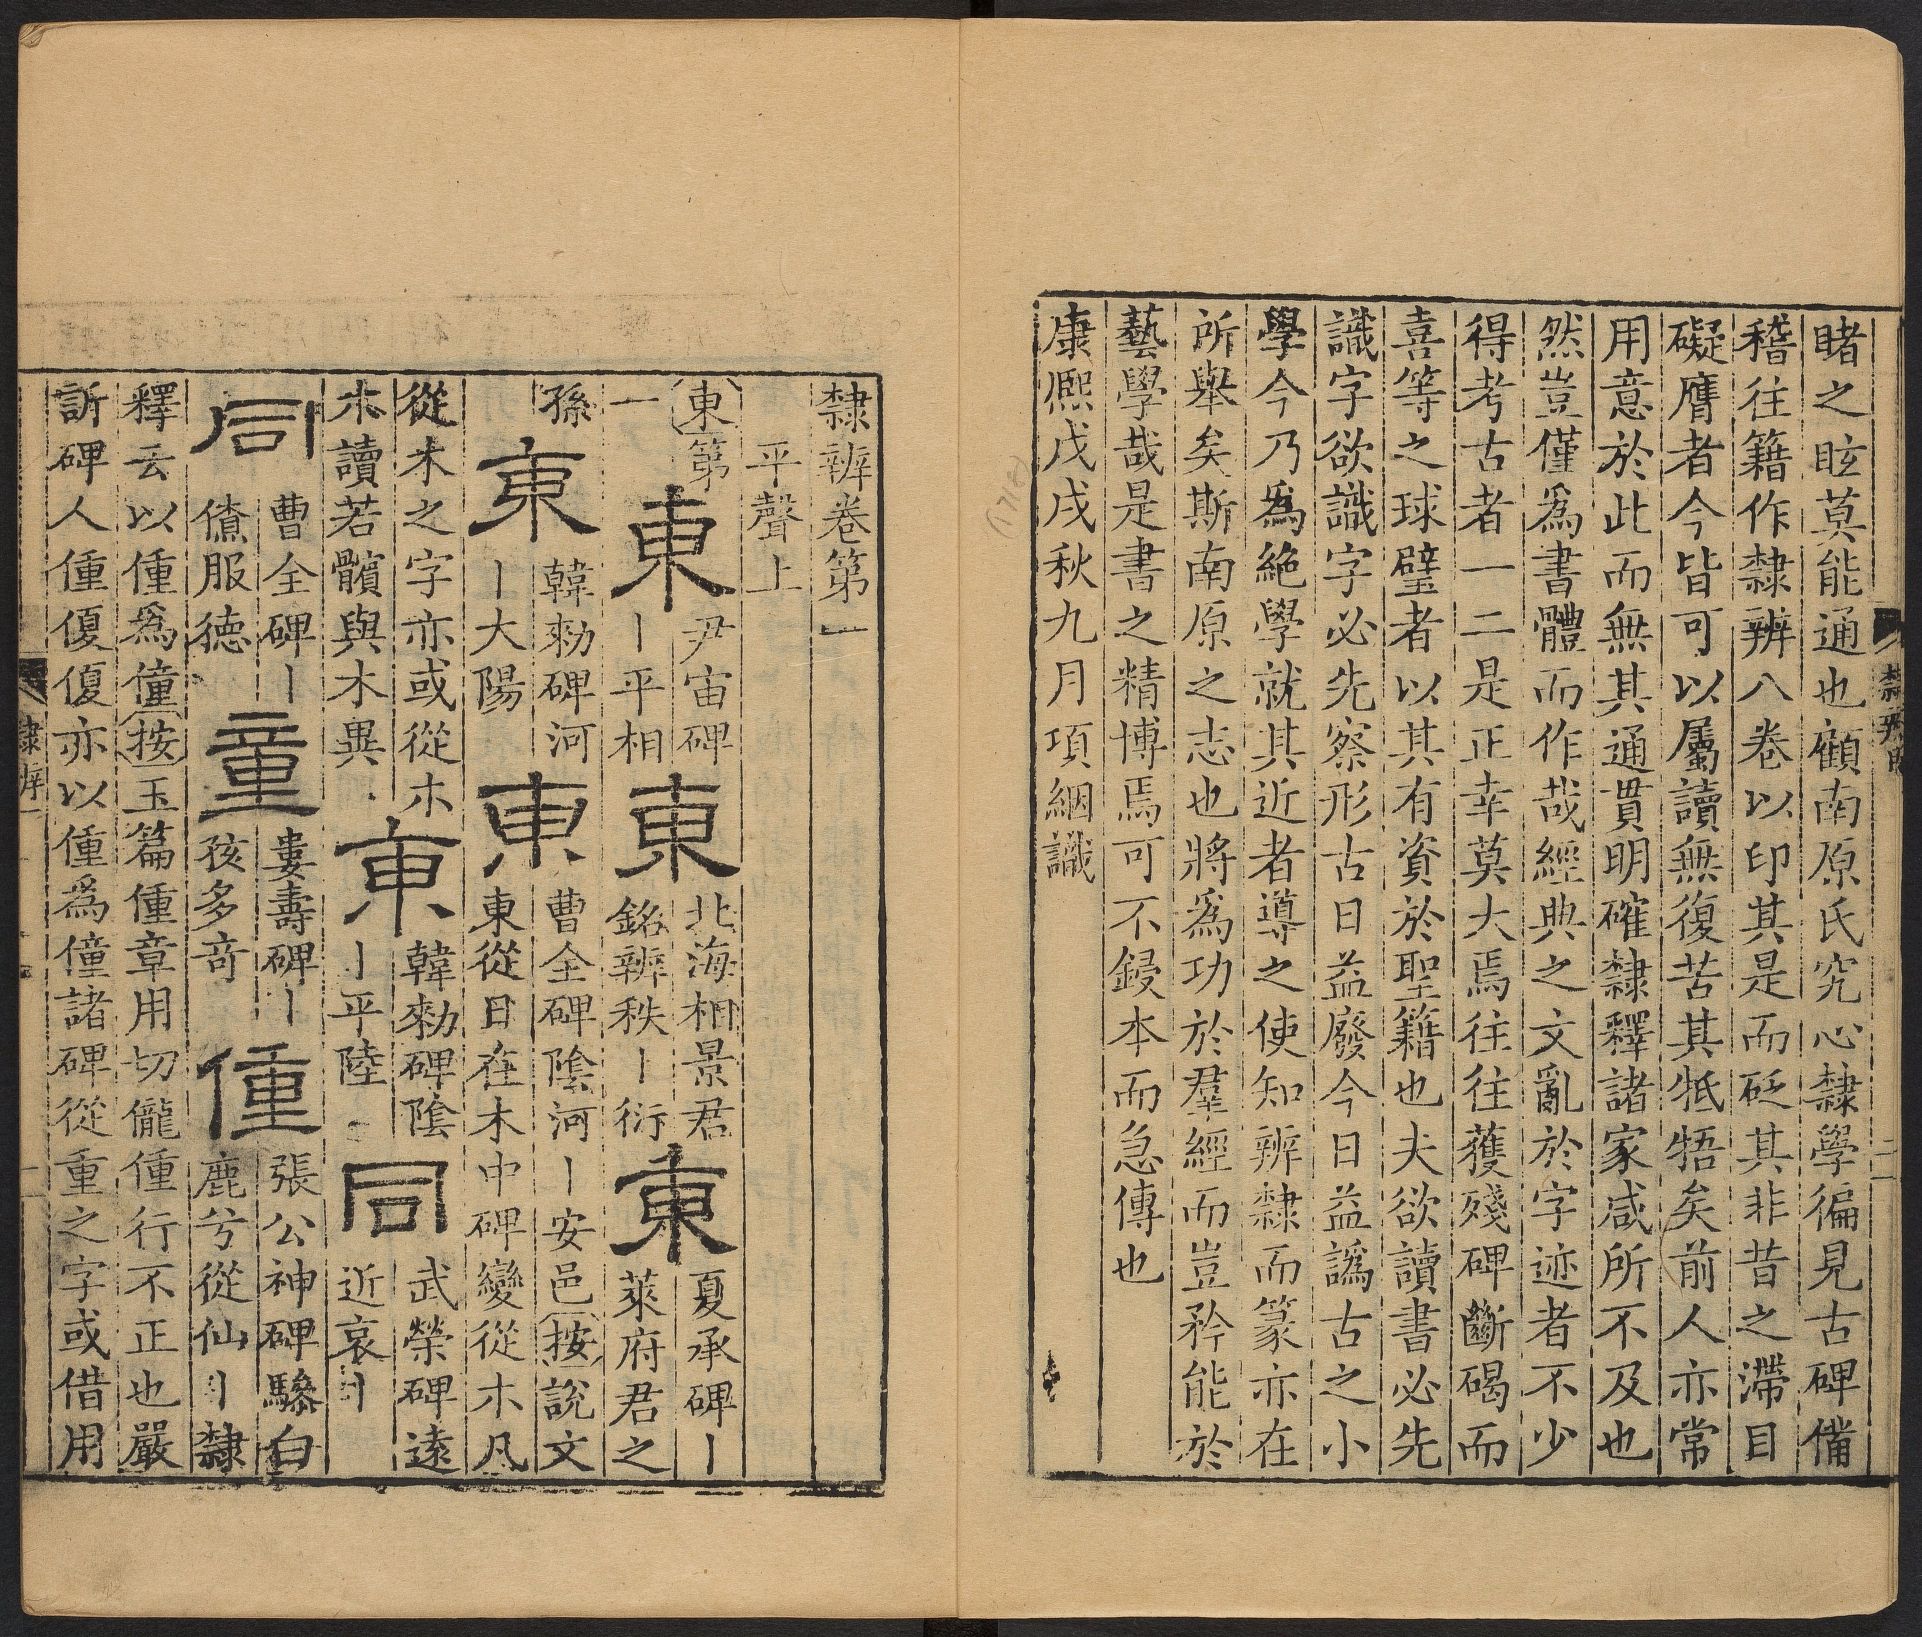 睹之眩莫能通也顧南原氏究心隸學徧見古碑備
稽往籍作隸辨八卷以印其是而砭其非昔之滯目
礙膺者今皆可以屬讀無復苦其牴牾矣前人亦常
用意於此而無其通貫明確隸釋諸家咸所不及也
然豈僅爲書體而作哉經典之文亂於字迹者不少
得考古者一二是正幸莫大焉往往獲殘碑斷碣而
喜等之球璧者以其有資於聖籍也夫欲讀書必先
識字欲識字必先察形古日益廢今日益譌古之小
學今乃爲絶學就其近者導之使知辨隸而篆亦在
所舉矣斯南原之志也將爲功於羣經而豈矜能於
藝學哉是書之精博焉可不鋟本而急傳也
康熙戊戌秋九月項絪識
(1718)
隸辨
二
隸辨卷第一
平聲上
東第
一
東
尹宙碑
丨平相
東
北海相景君
銘辨秩丨衍
東
夏承碑丨
萊府君之
孫
東
韓勑碑河
丨大陽
東
曹全碑陰河丨安邑按說文
東從日在木中碑變從木凡
從木之字亦或從木
木讀若髕與木異
東
韓勑碑陰
丨平陸
同
武榮碑遠
近哀丨
同
曹全碑丨
儥服德
童
婁壽碑丨
孩多奇
僮
張公神碑驂白
鹿兮從仙丨隸
釋云以僮爲僮按玉篇僮章用切儱僮行不正也嚴
訢碑人僮優優亦以僮爲僮諸碑從重之字或借用